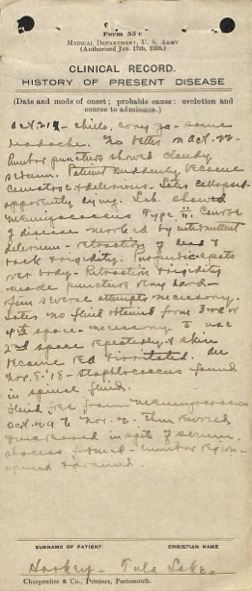 Form 55 c
MEDICAL DEPARTMENT, U. S. ARMY
(Authorized Jan. 17th, 1918.)
CLINICAL RECORD.
HISTORY OF PRESENT DISEASE
(Date and mode of onset; probable cause: evolution and
course to admission.)
Oct. 21 - chills, some
headache. No better on Oct. 22
lumbar puncture showed cloudy
serum. Patient suddenly became
comatose & delirious. Later collapsed -
apparently dying. Lab. showed
Meningococcus Type II. Course
of disease marked by intermittent
delirium - retraction of head &
neck & rigidity. Purpuric spots
over body - Retraction & rigidity
made puncture very hard -
often several attempts necessary.
Later no fluid obtained from 3rd or
4th space - necessary to use
2nd space repeatedly & skin
became red & irritated. On
Nov. 8. '18 - Staphlococcus found
in spinal fluid.
Fluid free from Meningococcus
Oct. 29 to Nov. 2. then
in spite of serum.
abscess formed - lumbar region -
opened & drained.
SURNAME OF PATIENT CHRISTIAN NAME
Tula Lake
Charpentier & Co., Printers, Portsmouth.